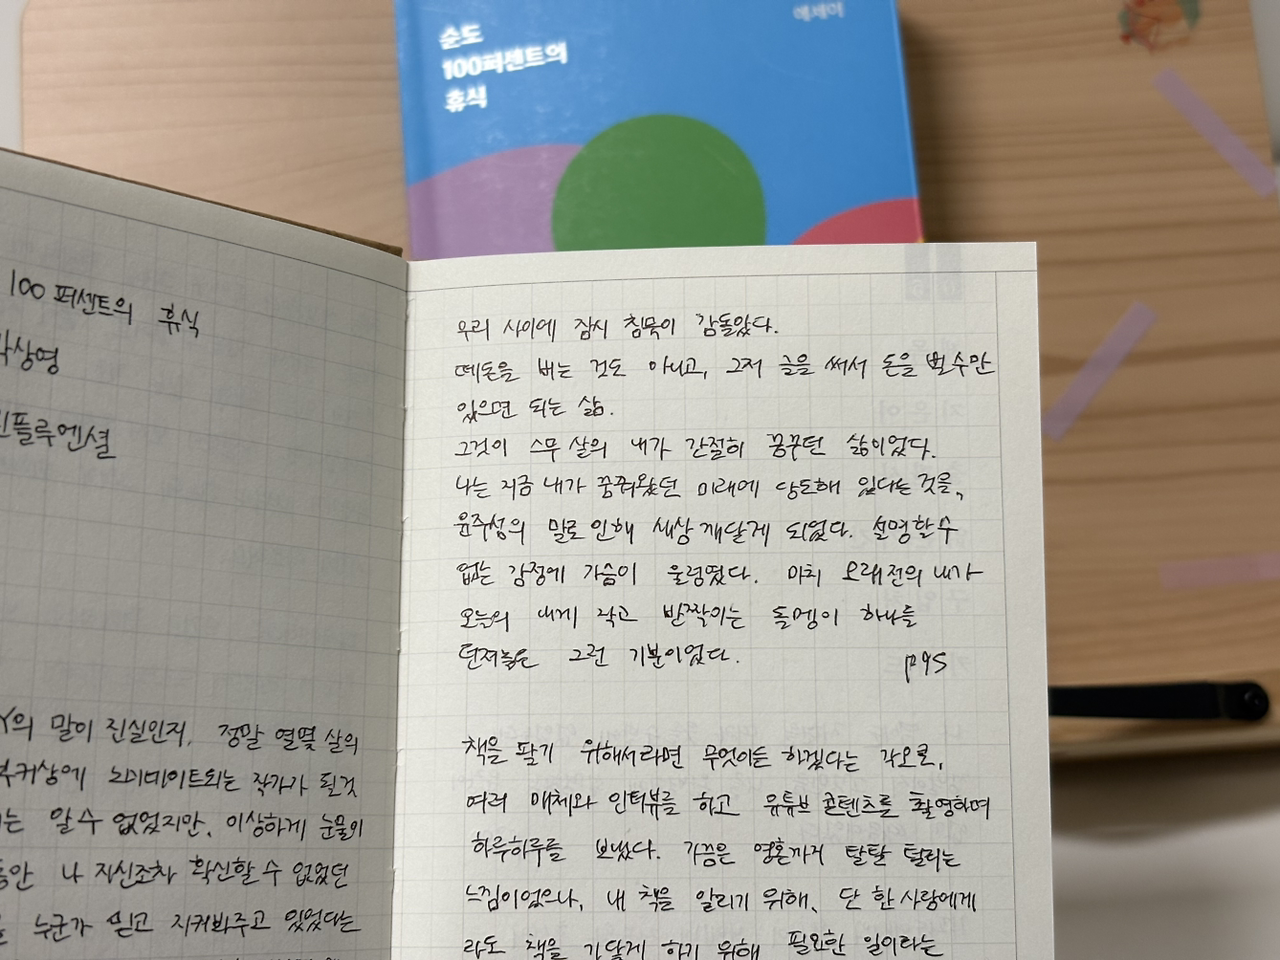 순도
100퍼센트의
휴식
에세이
100 퍼센트의 휴식
박상영
인플루엔셜
Y의 말이 진실인지, 정말 열몇 살의
부커상에 노미네이트되는 작가가 될것
는 알 수 없었지만, 이상하게 눈물이
동안 나 자신조차 확신할 수 없었던
누군가 믿고 지켜봐주고 있었다는
우리 사이에 잠시 침묵이 감돌았다.
떼돈을 버는 것도 아니고, 그저 글을 써서 돈을 벌 수만
있으면 되는 삶.
그것이 스무 살의 내가 간절히 꿈꾸던 삶이었다.
나는 지금 내가 꿈꿔왔던 미래에 당도해 있다는 것을,
윤주성의 말로 인해 새삼 깨닫게 되었다. 설명할 수
없는 감정에 가슴이 울렁였다. 마치 오래 전의 내가
오늘의 내게 작고 반짝이는 돌멩이 하나를
던져놓은 그런 기분이었다. p95
책을 팔기 위해서라면 무엇이든 하겠다는 각오로,
여러 매체와 인터뷰를 하고 유튜브 콘텐츠를 촬영하며
하루하루를 보냈다. 가끔은 영혼까지 탈탈 털리는
느낌이었으나, 내 책을 알리기 위해, 단 한 사람에게
라도 책을 가닿게 하기 위해 필요한 일이라는